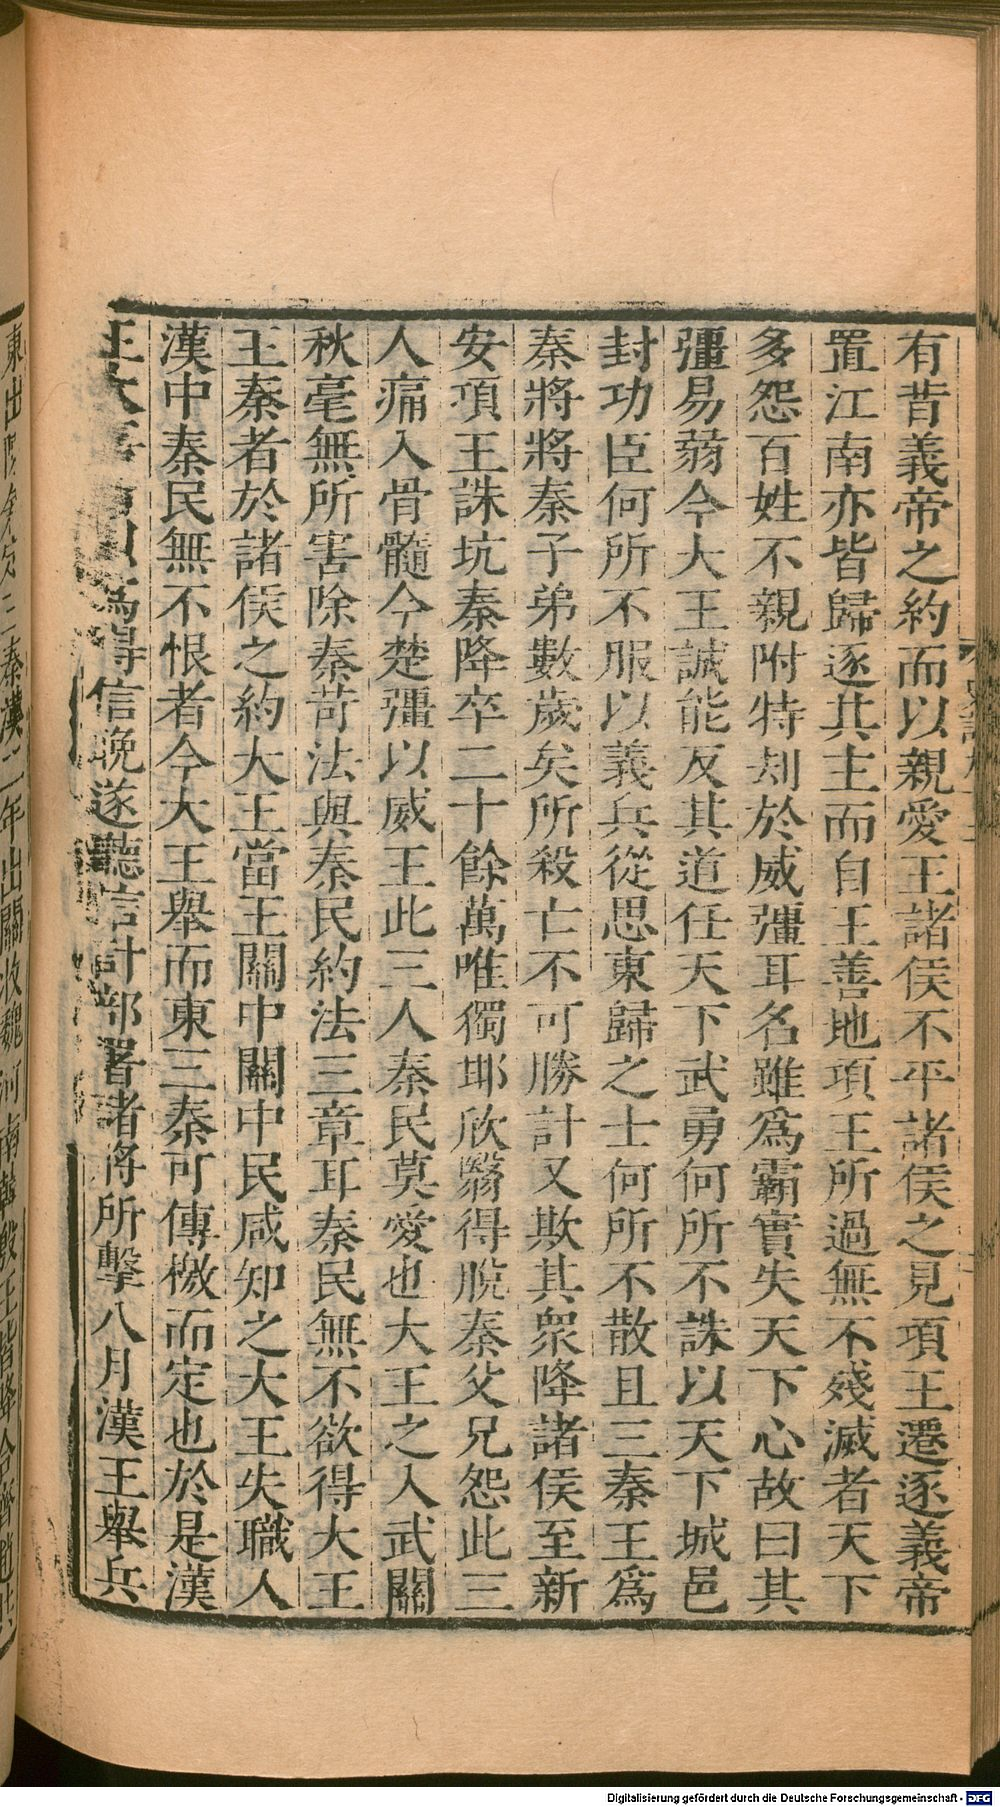 有昔義帝之約而以親愛王諸侯不平諸侯之見項王遷逐義帝
置江南亦皆歸逐其主而自王善地項王所過無不殘滅者天下
多怨百姓不親附特刼於威彊耳名雖爲霸實失天下心故曰其
彊易弱今大王誠能反其道任天下武勇何所不誅以天下城邑
封功臣何所不服以義兵從思東歸之士何所不散且三秦王爲
秦將將秦子弟數歲矣所殺亡不可勝計又欺其衆降諸侯至新
安項王誅坑秦降卒二十餘萬唯獨邯欣翳得脫秦父兄怨此三
人痛入骨髓今楚彊以威王此三人秦民莫愛也大王之入武關
秋毫無所害除秦苛法與秦民約法三章耳秦民無不欲得大王
王秦者於諸侯之約大王當王關中關中民咸知之大王失職入
漢中秦民無不恨者今大王舉而東三秦可傳檄而定也於是漢
王大喜自以爲得信晚遂聽信計部署諸將所擊八月漢王舉兵
東出陳倉定三秦漢二年出關收魏河南韓殷王皆降合齊趙共
Digitalisierung gefördert durch die Deutsche Forschungsgemeinschaft - DFG